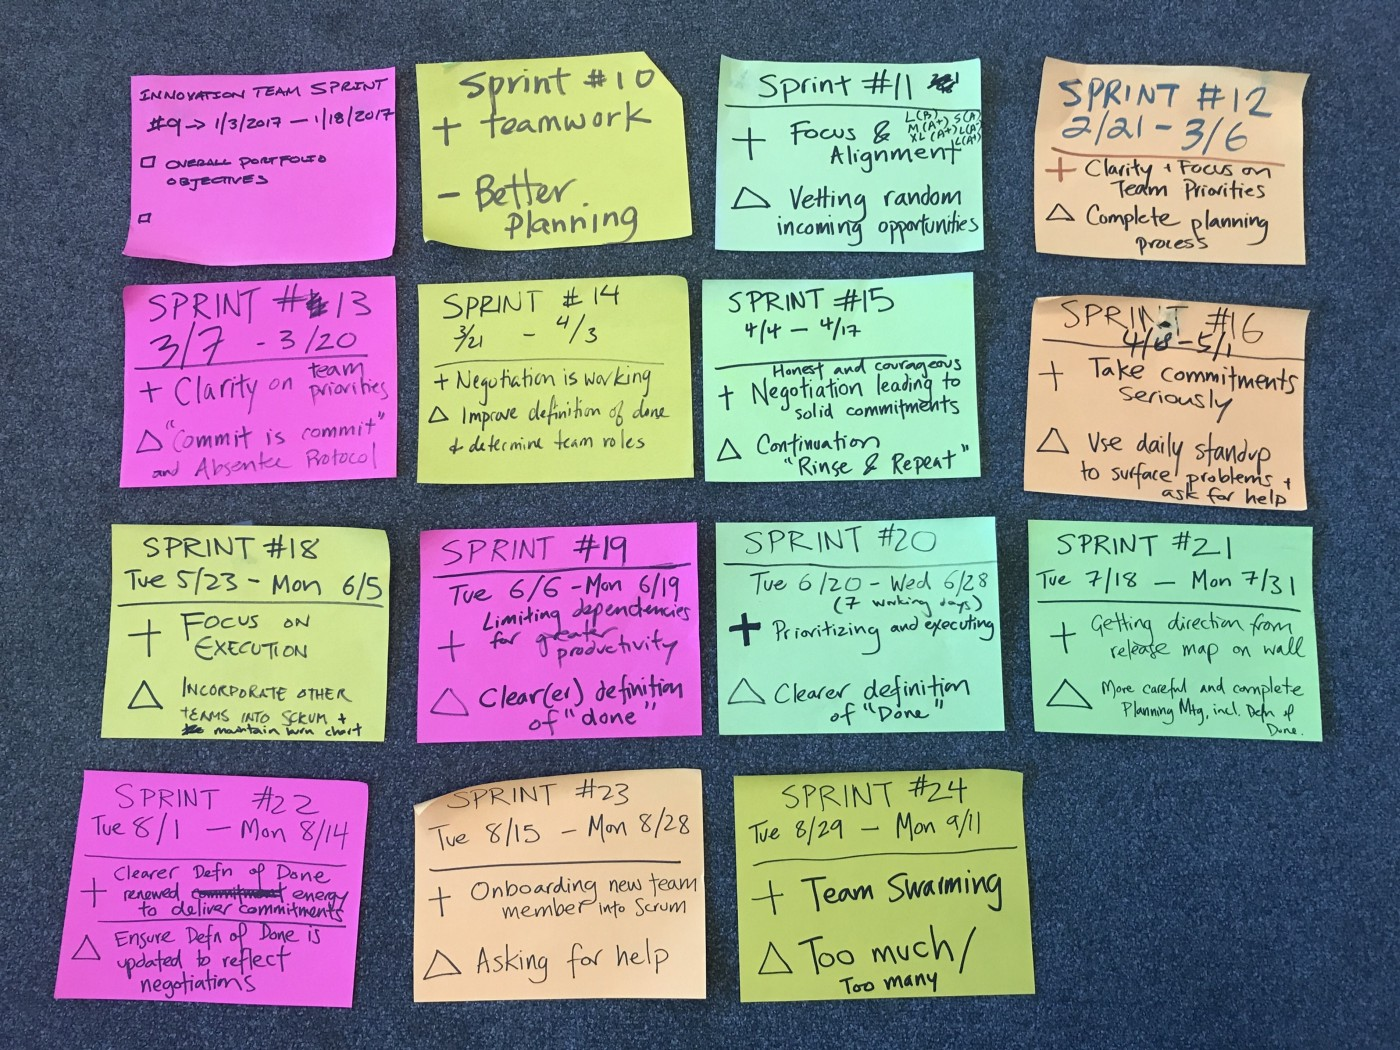 INNOVATION TEAM SPRINT
#9 → 1/3/2017 — 1/18/2017
OVERALL PORTFOLIO
OBJECTIVES
Sprint #10
+ teamwork
- Better
planning
Sprint #11
L(B) S(A)
M(A+) L(A-)
XL(A+) L(A+)
+ Focus &
Alignment
△ Vetting random
incoming opportunities
SPRINT #12
2/21 - 3/6
+ Clarity + Focus on
Team Priorities
△ Complete planning
process
SPRINT # 13
3/7 - 3/20
+ Clarity on team
priorities
△ "Commit is commit"
and Absentee Protocol
SPRINT # 14
3/21 - 4/3
+ Negotiation is working
△ Improve definition of done
& determine team roles
SPRINT #15
4/4 — 4/17
Honest and courageous
+ Negotiation leading to
solid commitments
△ Continuation
"Rinse & Repeat"
SPRINT #16
4/18 - 5/1
+ Take commitments
seriously
△ Use daily standup
to surface problems +
ask for help
SPRINT #18
Tue 5/23 - Mon 6/5
+ FOCUS ON
EXECUTION
△ INCORPORATE OTHER
TEAMS INTO SCRUM +
maintain burn chart
SPRINT #19
Tue 6/6 - Mon 6/19
Limiting dependencies
+ for greater
productivity
△ Clear(er) definition
of "done"
SPRINT #20
Tue 6/20 - Wed 6/28
(7 working days)
+ Prioritizing and executing
△ Clearer definition
of "Done"
SPRINT #21
Tue 7/18 — Mon 7/31
+ Getting direction from
release map on wall
△ More careful and complete
Planning Mtg, incl. Defn of
Done.
SPRINT #22
Tue 8/1 — Mon 8/14
Clearer Defn of Done
+ renewed commitment energy
to deliver commitments
△ Ensure Defn of Done is
updated to reflect
negotiations
SPRINT #23
Tue 8/15 — Mon 8/28
+ Onboarding new team
member into Scrum
△ Asking for help
SPRINT #24
Tue 8/29 — Mon 9/11
+ Team Swarming
△ Too much/
Too many